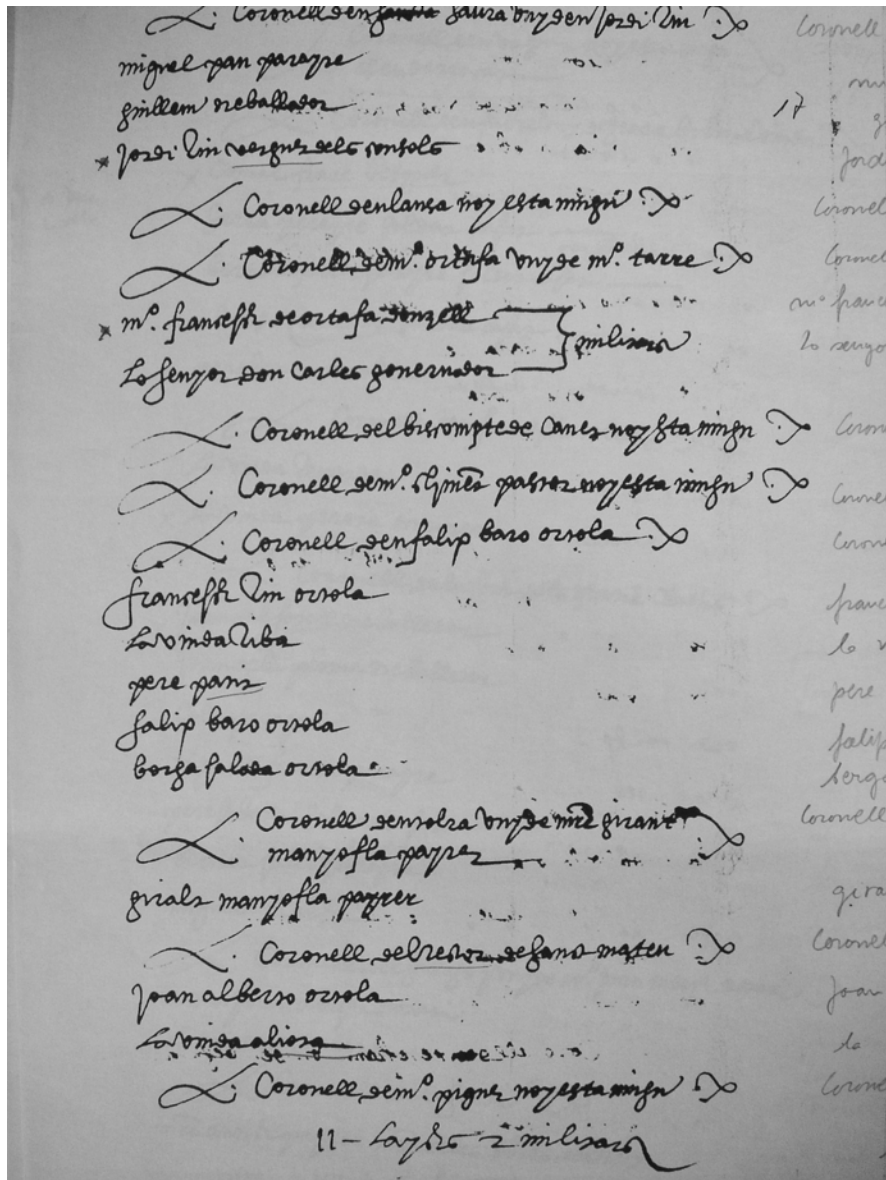 Coronell den saura vny den jordi lin
miquel pan parayre
guillem treballador
17
jordi lin verguer dels consols
Coronell den lansa noy esta ningu
Coronell de mº. ortafa vny de mº. tarre
mº. francesch de ortafa donzell
militars
lo senyor don Carles governador
Coronell del biscompte de Canet noy esta ningu
Coronell de mº. pastor noy esta ningu
Coronell den falip baro ortola
francesch lin ortola
la viuda riba
pere paris
falip baro ortola
borga salada ortola
Coronell den vny de girant
manyofla payrer
giralt manyofla payrer
Coronell del rector de sanct mateu
joan alberto ortola
la viuda aliona
Coronell de mº. piquer noy esta ningu
11 - laychs 2 militars
Coronell
Jord
Coronel
Coronel
mº franc
lo senyo
Coron
Corone
Coron
franc
la v
pere
falip
berga
Coronell
gira
Coronel
Joan
la
Corone